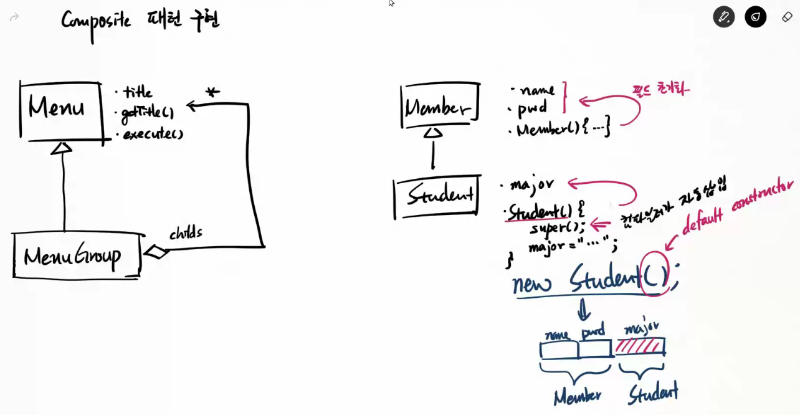 Composite 패턴 구현
Menu
· title
· getTitle()
· execute()
*
MenuGroup
childs
Member
· name
· pwd
· Member() { ... }
필드 초기화
Student
· major
· Student() {
super();
major = "...";
}
컴파일러가 자동삽입
default constructor
new Student();
name pwd major
Member Student